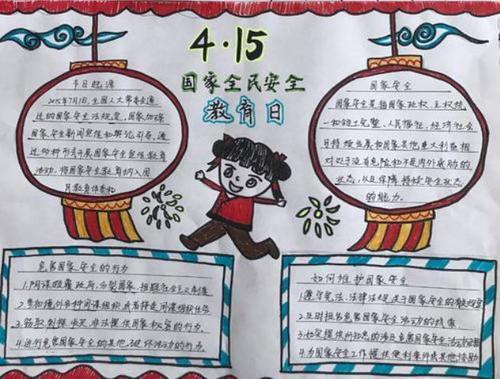 4·15
国家全民安全
教育日
节日起源
2015年7月1日,全国人大常委会通
过的国家安全法规定,国家加强
国家安全新闻宣传和舆论引导,通
过多种形式开展国家安全宣传教育
活动,将国家安全教育纳入国
民教育体系和
国家安全
国家安全是指国家政权、主权统
一和领土完整、人民福祉、经济社会
可持续发展和国家其他重大利益相
对处于没有危险和不受内外威胁的
状态,以及保障持续安全状态
的能力。
危害国家安全的行为
1.阴谋颠覆政府,分裂国家,推翻社会主义制度
2.参加境外各种间谍组织或者接受间谍组织任务
3.窃取刺探收买非法提供国家秘密的行为.
4.进行危害国家安全的其他破坏活动的行为.
如何维护国家安全
1.遵守宪法、法律法规关于国家安全的有关规定
2.及时报告危害国家安全活动的线索
3.如实提供所知悉的涉及危害国家安全活动证据
4.为国家安全工作提供便利条件或其他协助